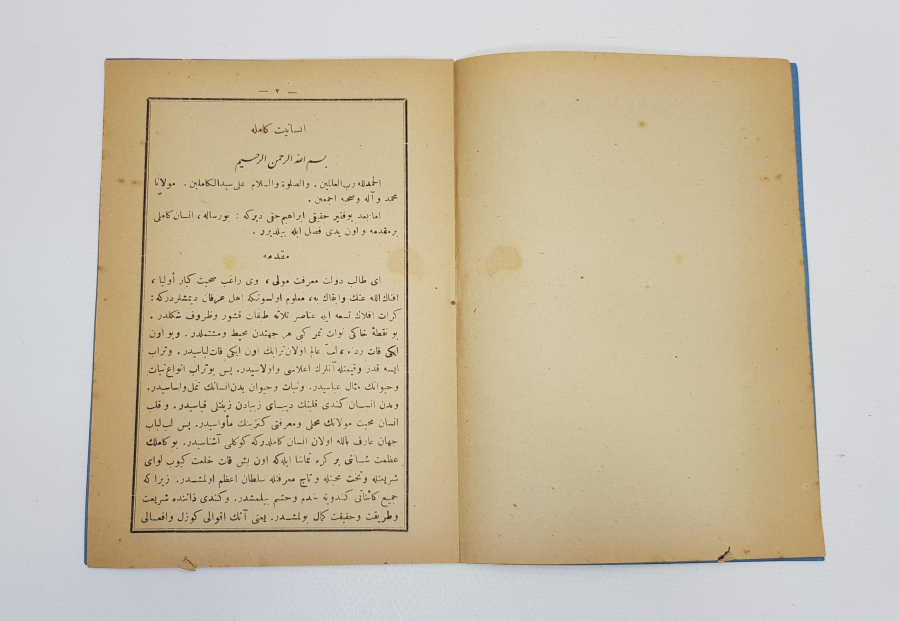 — ٢ —
انسانيت كامله
بسم الله الرحمن الرحيم
الحمدلله رب العالمين . والصلوة والسلام على سيدالكاملين . مولانا
محمد وآله وصحبه اجمعين .
امابعد بوفقير حقيقى ابراهيم حقى ديركه : بورساله ، انسان كاملى
برمقدمه و اون يدى فصل ايله بيلديرر .
مقدمه
اى طالب دولت معرفت مولى ، وى راغب صحبت كبار أوليا ،
افناك الله عنك وابقاك به ، معلوم اولسونكه اهل عرفان ديمشلردركه :
كرات افلاك تسعه ايله عناصر ثلاثه طبقات قشور وظروف شكلدر .
بو نقطهٔ خاكى نوات ثمر كبى هر جهتدن محيط ومشتملدر . وبو اون
ايكى قات عالم اولان ترابك اون ايكى قات لباسيدر . وتراب
ايسه قدر وقيمتله آنلرك اعلاسى واولاسيدر . پس بوتراب انواع نبات
وحيوانك مثال عباسيدر . ونبات وحيوان بدن انسانك واساسيدر .
وبدن انسان كندى قلبنك ديباى زيبادن زينتلى قباسيدر . و قلب
انسان محبت مولانك محلى ومعرفتى كنزينك مأواسيدر . پس لب لباب
جهان عارف بالله اولان انسان كاملدركه كوكلى آشناسيدر . بو كاملك
عظمت شانى بر كره تماشا ايله كه اون بش قات خلعت كيوب لواى
شريعتله وتخت محبتله و تاج معرفتله سلطان اعظم اولمشدر . زيرا كه
جميع كائناتى كندويه خدم وحشم بيلمشدر . وكندى ذاتنده شريعت
وطريقت وحقيقت كمال بولمشدر . يعنى آنك اقوالى كوزل وافعالى